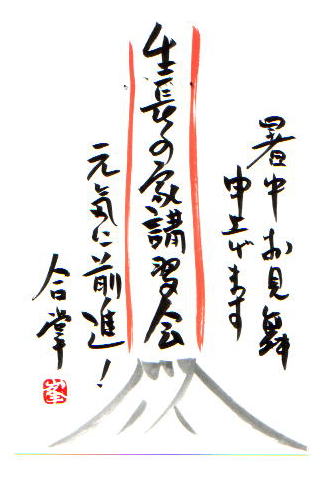 暑中お見舞
申上げます
生長の家講習会
元気に前進!
合掌
峯